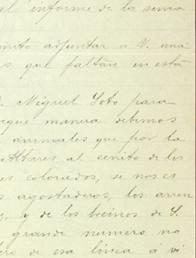 el informe de la
mito adjuntar a V. una
s que faltan en está
Miguel Soto para
que manera debimos
animales que por la
Altares, al centro de los
es coloreados, se nos es
s agostaderos, los arren
, y de los becinos de S.
grande numero, no
ero de esa linea á